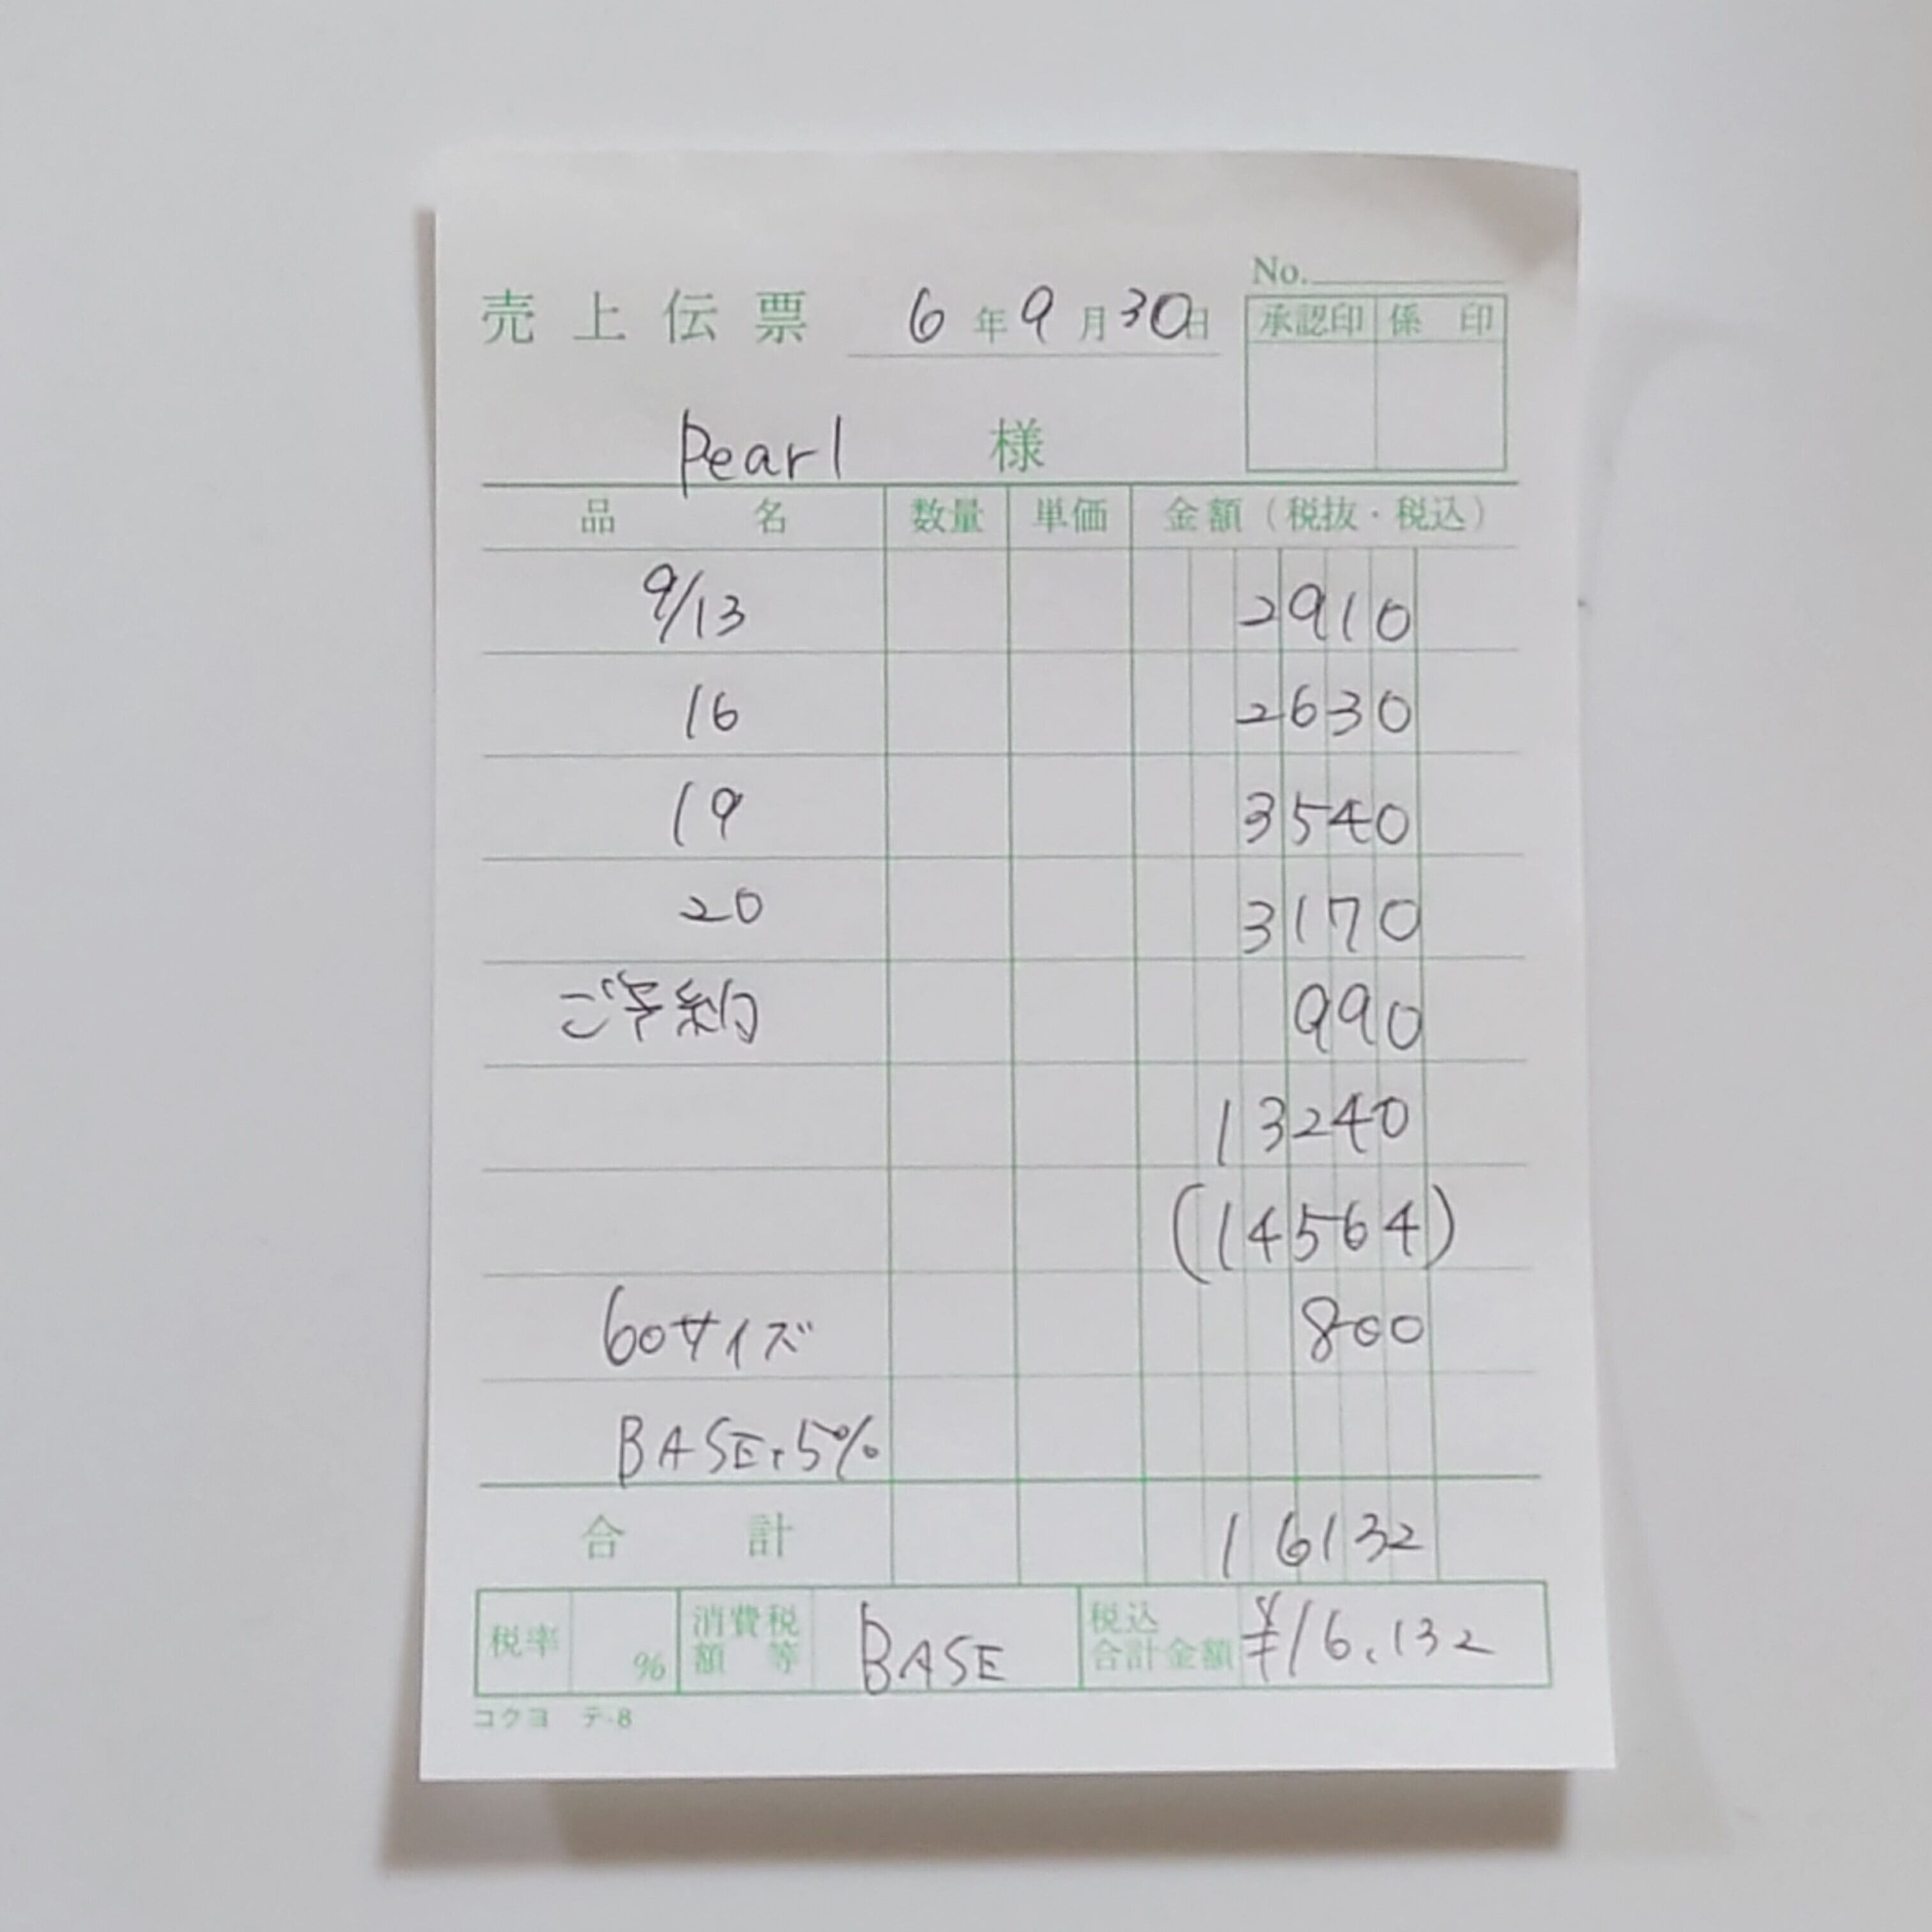 No.
売上伝票 6年9月30日
承認印 係印
Pearl 様
品名 数量 単価 金額(税抜・税込)
9/13 2910
16 2630
19 3540
20 3170
ご予約 990
13240
(14564)
60サイズ 800
BASE+5%
合計 16132
税率 % 消費税額等 BASE 税込合計金額 ¥16,132
コクヨ テ-8